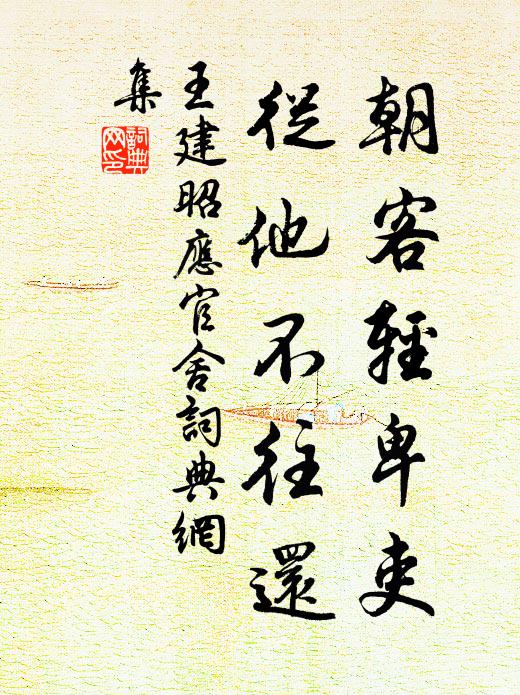 朝客輕卑吏
從他不往還
王建昭應官舍詞典網
集
詞典网印